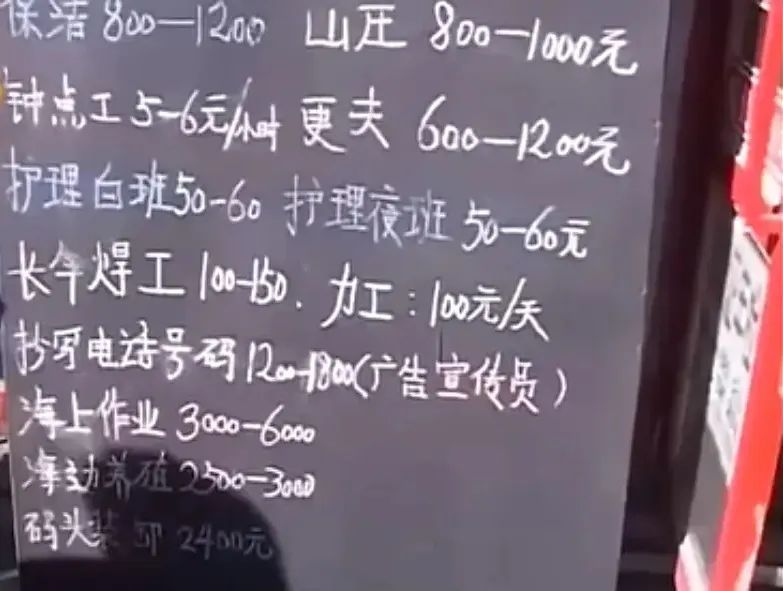 保洁 800—1200 山庄 800—1000元
钟点工 5-6元/小时 更夫 600—1200元
护理白班50-60 护理夜班 50-60元
长年焊工 100-150. 力工:100元/天
抄写电话号码1200-1800(广告宣传员)
海上作业 3000-6000
海边养殖 2500-3000
码头装卸 2400元